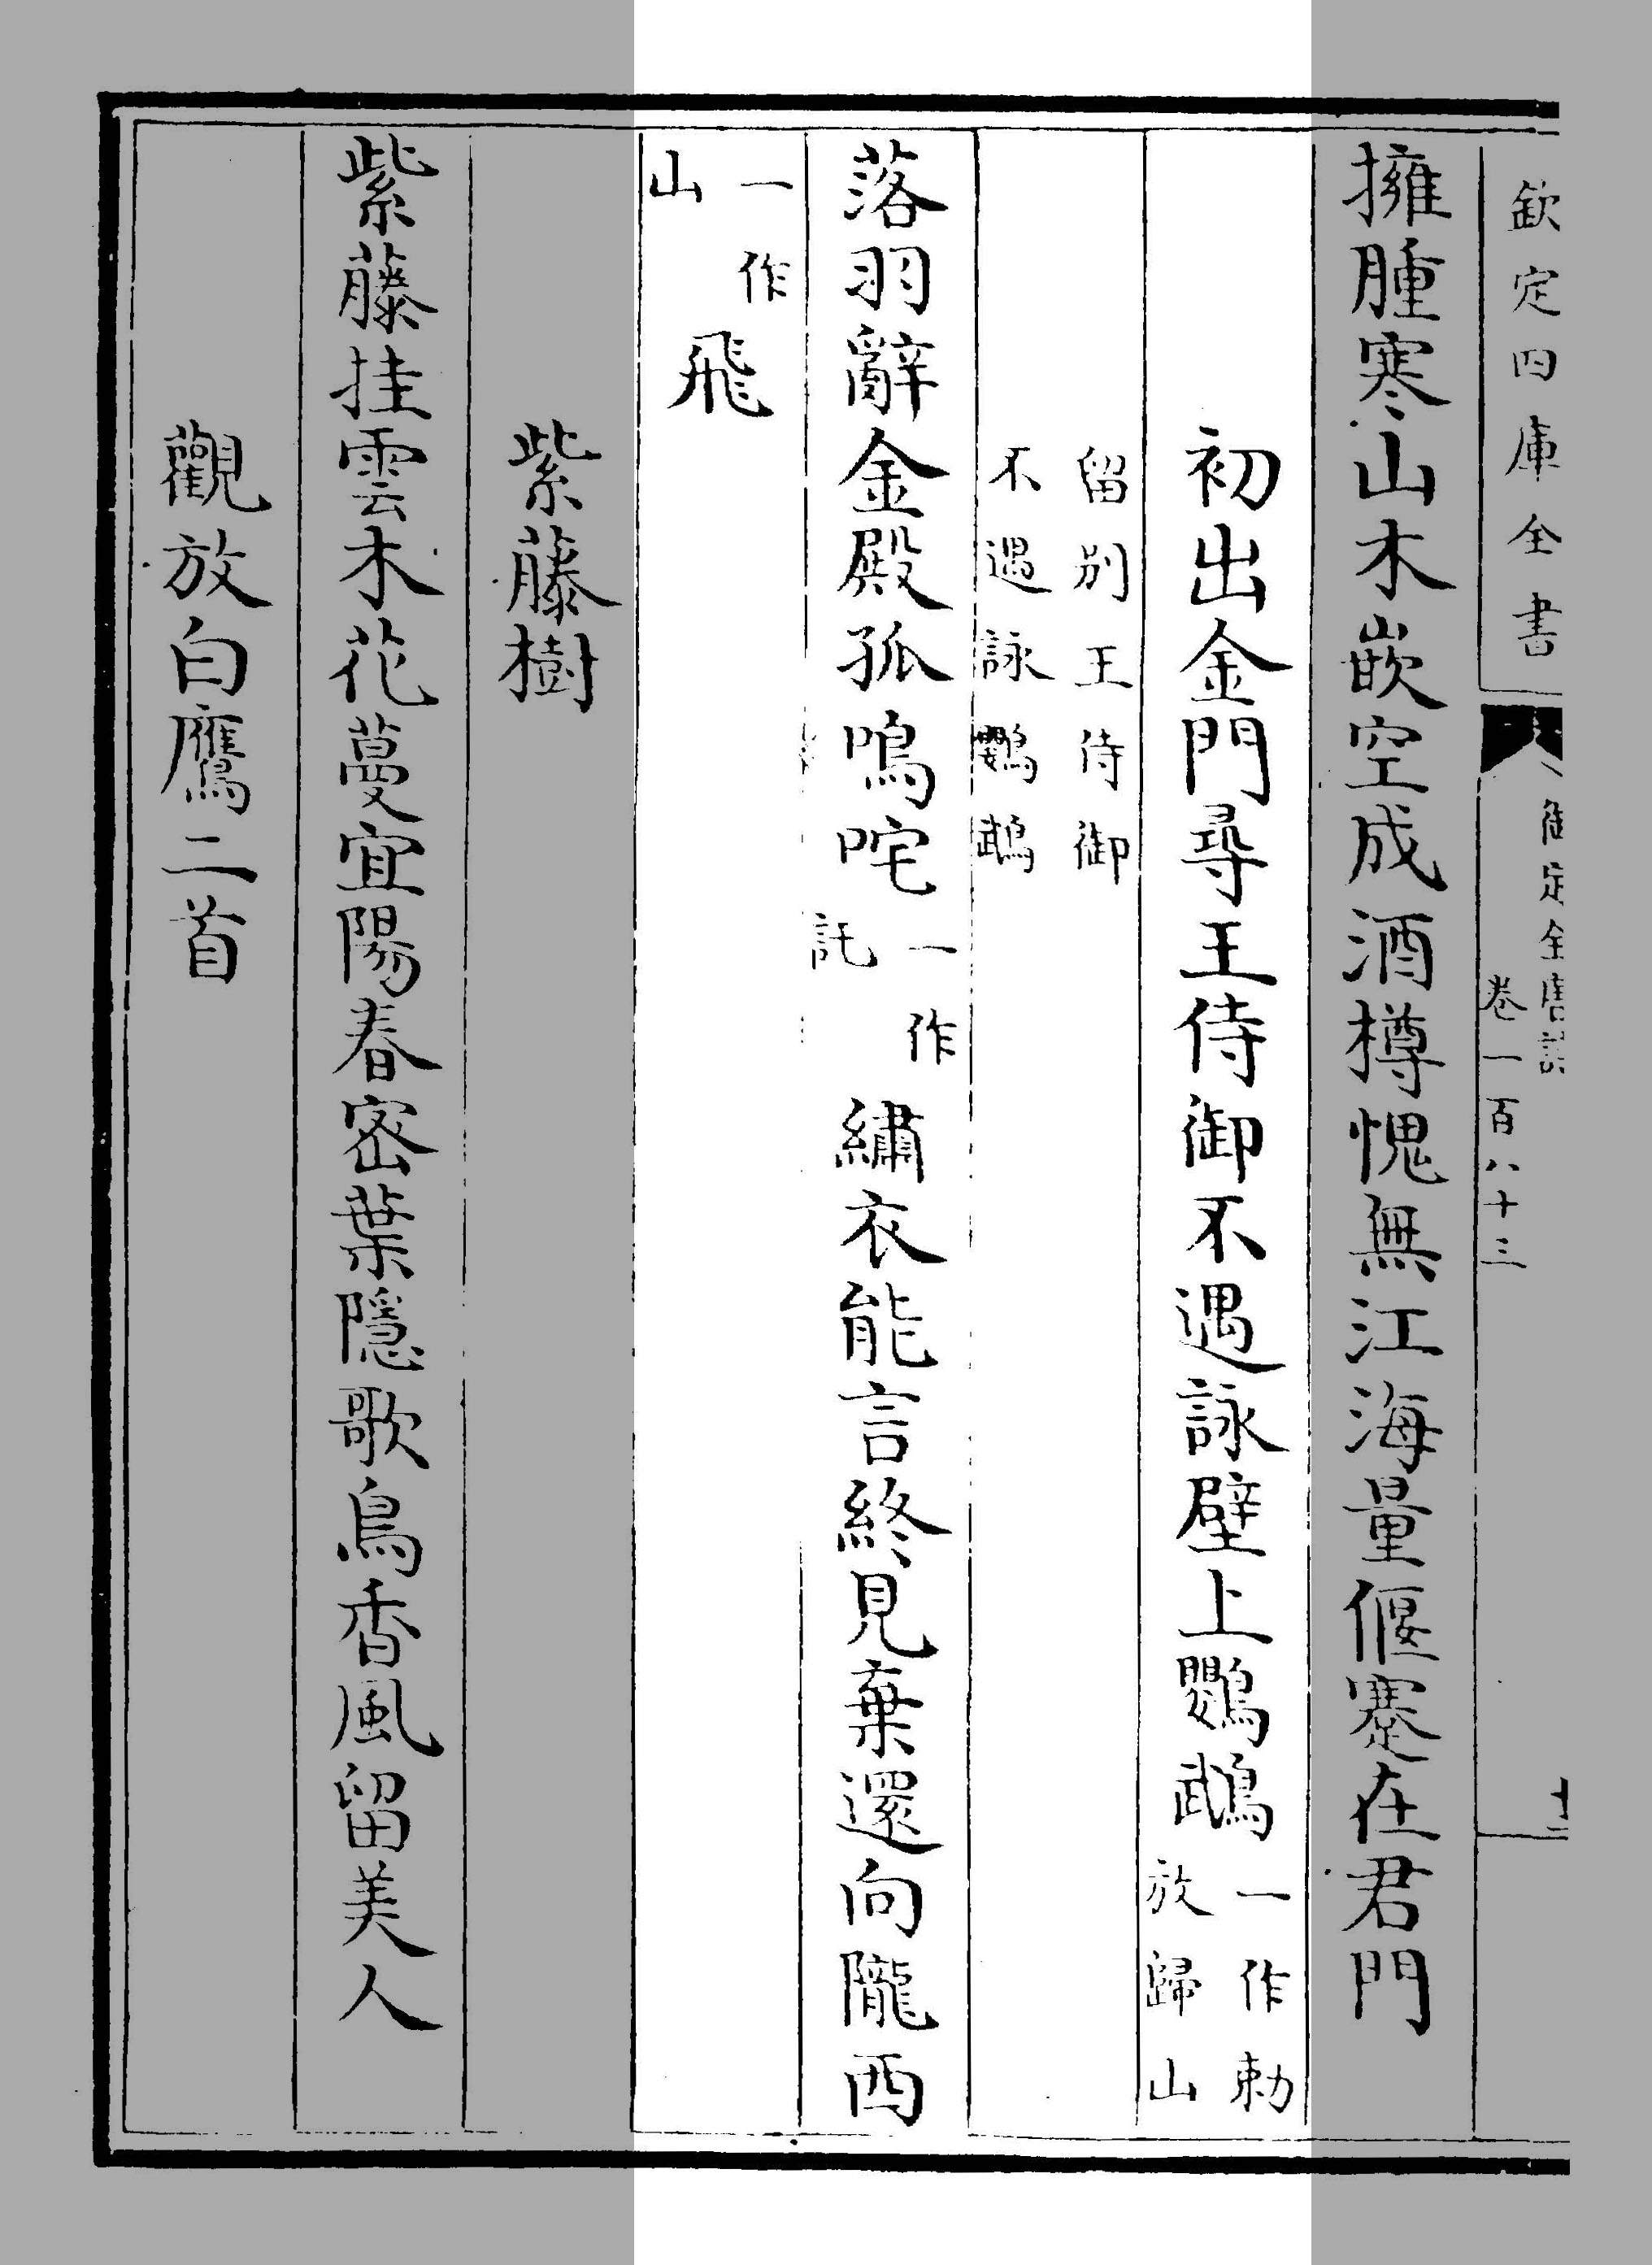 欽定四庫全書
御定全唐詩
卷一百八十三
擁腫寒山木嵌空成酒樽愧無江海量偃蹇在君門
初出金門尋王侍御不遇詠壁上鸚鵡一作勅放歸山
留別王侍御不遇詠鸚鵡
落羽辭金殿孤鳴咤一作託繡衣能言終見棄還向隴西
一作山飛
紫藤樹
紫藤挂雲木花蔓宜陽春密葉隱歌鳥香風留美人
觀放白鷹二首